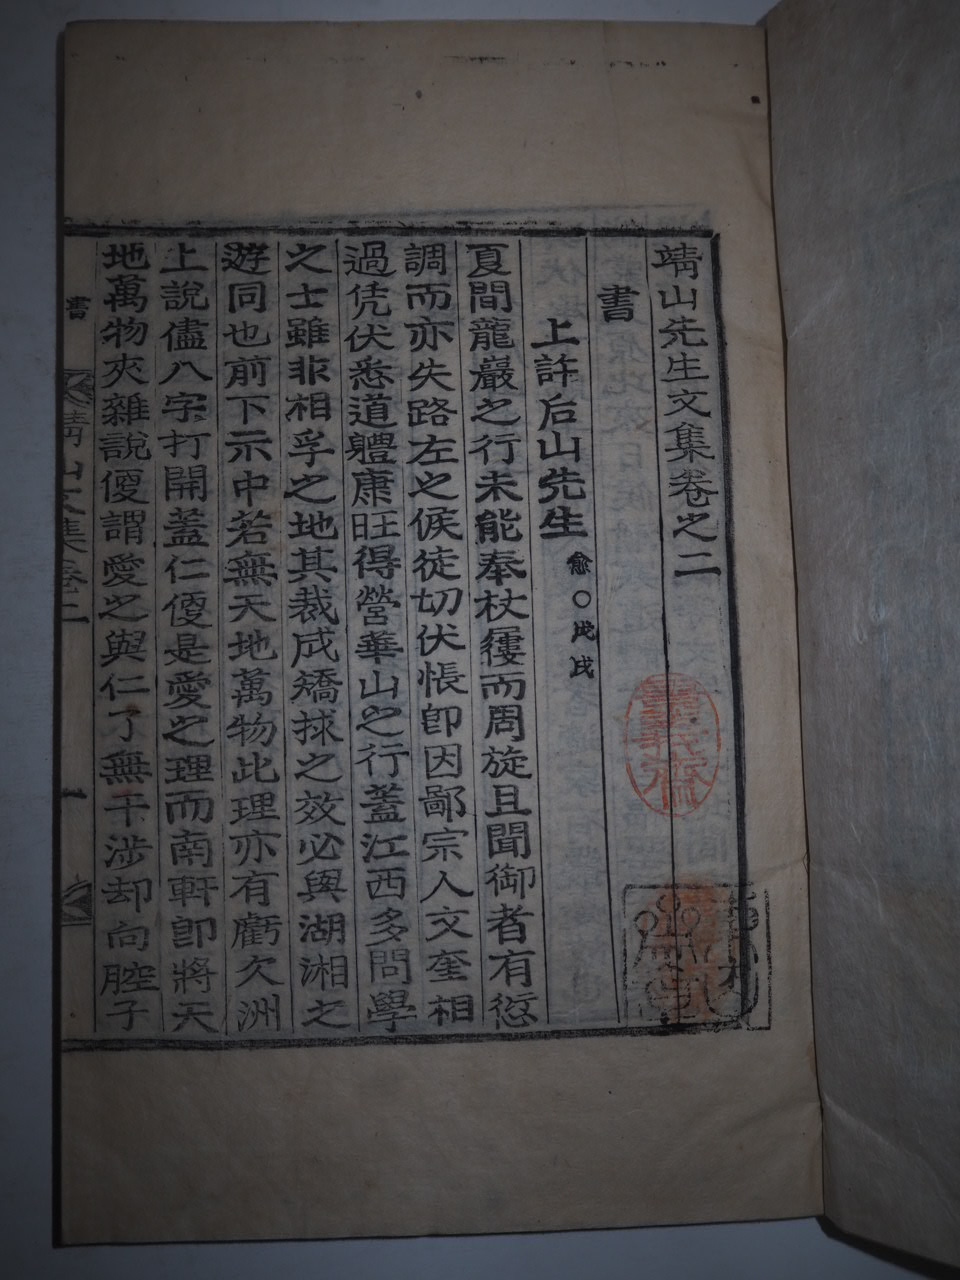 靖山先生文集卷之二
書
上許后山先生 愈○戊戌
夏間龍巖之行未能奉杖屨而周旋且聞御者有愆
調而亦失路左之候徒切伏悵卽因鄙宗人文奎相
過凭伏悉道軆康旺得營華山之行蓋江西多問學
之士雖非相孚之地其裁成矯捄之效必與湖湘之
游同也前下示中若無天地萬物此理亦有虧欠洲
上說儘八字打開蓋仁優是愛之理而南軒卽將天
地萬物夾雜說優謂愛之與仁了無干涉却向腔子
書
靖山文集卷二
一